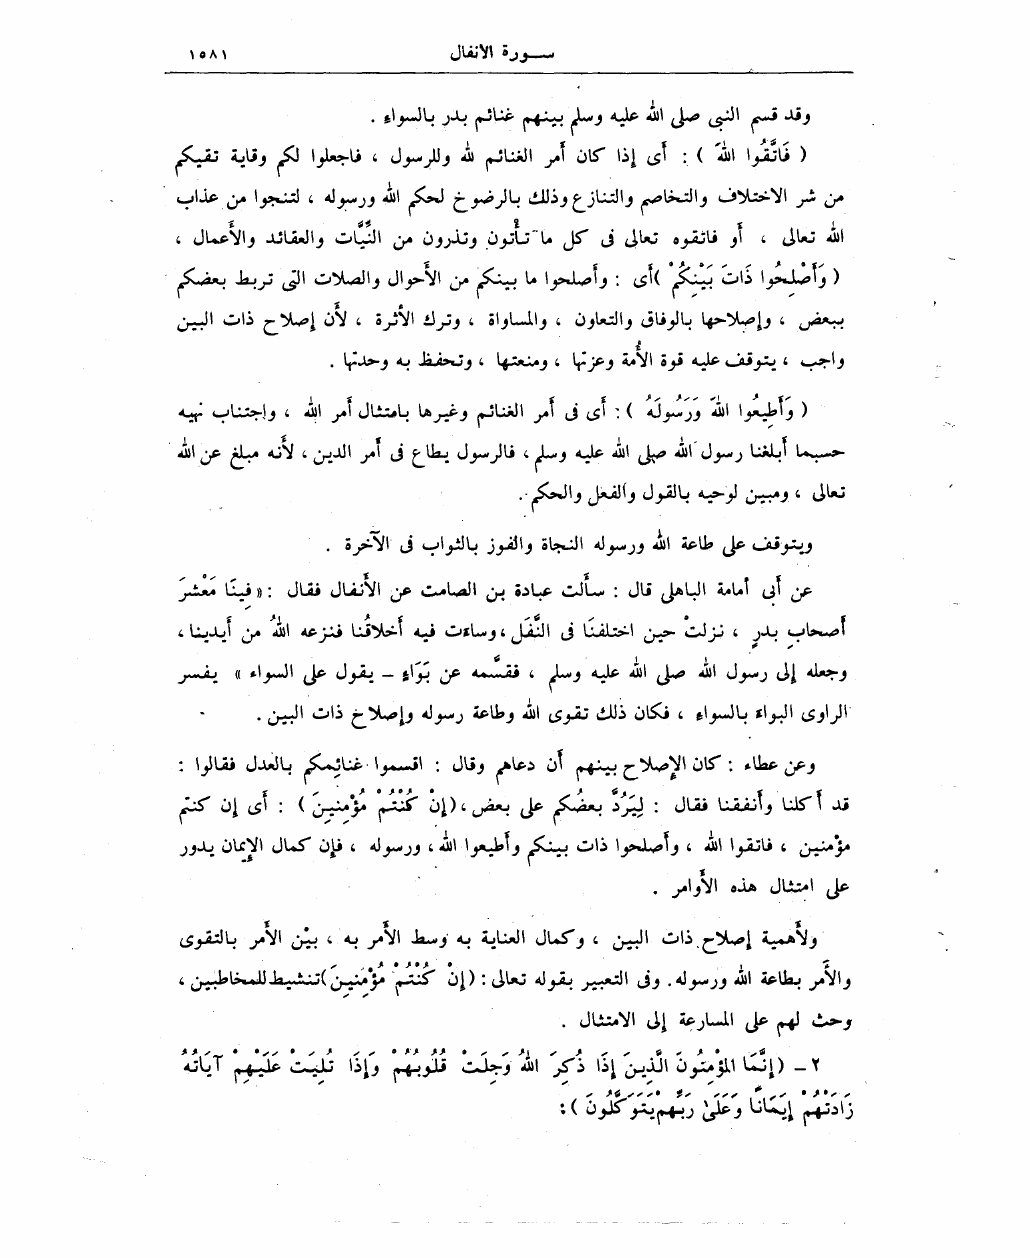 ســورة الأنفال ١٥٨١
وقد قسم النبى صلى الله عليه وسلم بينهم غنائم بدر بالسواء .
( فَاتَّقُوا اللهَ ) : أى إذا كان أمر الغنائم لله وللرسول ، فاجعلوا لكم وقاية تقيكم
من شر الاختلاف والتخاصم والتنازع وذلك بالرضوخ لحكم الله ورسوله ، لتنجوا من عذاب
الله تعالى ، أو فاتقوه تعالى فى كل ما تأتون وتذرون من النِّيَّات والعقائد والأعمال ،
( وَأَصْلِحُوا ذَاتَ بَيْنِكُمْ )أى : وأصلحوا ما بينكم من الأحوال والصلات التى تربط بعضكم
ببعض ، وإصلاحها بالوفاق والتعاون ، والمساواة ، وترك الأثرة ، لأن إصلاح ذات البين
واجب ، يتوقف عليه قوة الأُمة وعزتها ، ومنعتها ، وتحفظ به وحدتها .
( وَأَطِيعُوا اللهَ وَرَسُولَهُ ) : أى فى أمر الغنائم وغيرها بامتثال أمر الله ، واجتناب نهيه
حسبما أبلغنا رسول الله صلى الله عليه وسلم ، فالرسول يطاع فى أمر الدين ، لأنه مبلغ عن الله
تعالى ، ومبين لوحيه بالقول والفعل والحكم .
ويتوقف على طاعة الله ورسوله النجاة والفوز بالثواب فى الآخرة .
عن أبى أمامة الباهلى قال : سألت عبادة بن الصامت عن الأنفال فقال : « فِينَا مَعْشَرَ
أصحابِ بدرٍ ، نزلتْ حين اختلفنَا فى النَّفَل ، وساءت فيه أخلاقُنا فنزعه اللهُ من أيدينا ،
وجعله إلى رسول الله صلى الله عليه وسلم ، فقسَّمه عن بَوَاءٍ – يقول على السواء » يفسر
الراوى البواء بالسواء ، فكان ذلك تقوى الله وطاعة رسوله وإصلاح ذات البين .
وعن عطاء : كان الإصلاح بينهم أن دعاهم وقال : اقسموا غنائمكم بالعدل فقالوا :
قد أكلنا وأنفقنا فقال : لِيَرُدَّ بعضُكم على بعض ، (إِنْ كُنْتُمْ مُؤْمِنِينَ ) : أى إن كنتم
مؤمنين ، فاتقوا الله ، وأصلحوا ذات بينكم وأطيعوا الله ، ورسوله ، فإن كمال الإيمان يدور
على امتثال هذه الأوامر .
ولأهمية إصلاح ذات البين ، وكمال العناية به وسط الأمر به ، بيْن الأمر بالتقوى
والأمر بطاعة الله ورسوله . وفى التعبير بقوله تعالى : (إِنْ كُنْتُمْ مُؤْمِنِينَ)تنشيط للمخاطبين ،
وحث لهم على المسارعة إلى الامتثال .
٢ – (إِنَّمَا المُؤْمِنُونَ الَّذِينَ إِذَا ذُكِرَ اللهُ وَجِلَتْ قُلُوبُهُمْ وَإِذَا تُلِيَتْ عَلَيْهِمْ آيَاتُهُ
زَادَتْهُمْ إِيمَانًا وَعَلَىٰ رَبِّهِمْ يَتَوَكَّلُونَ ) :